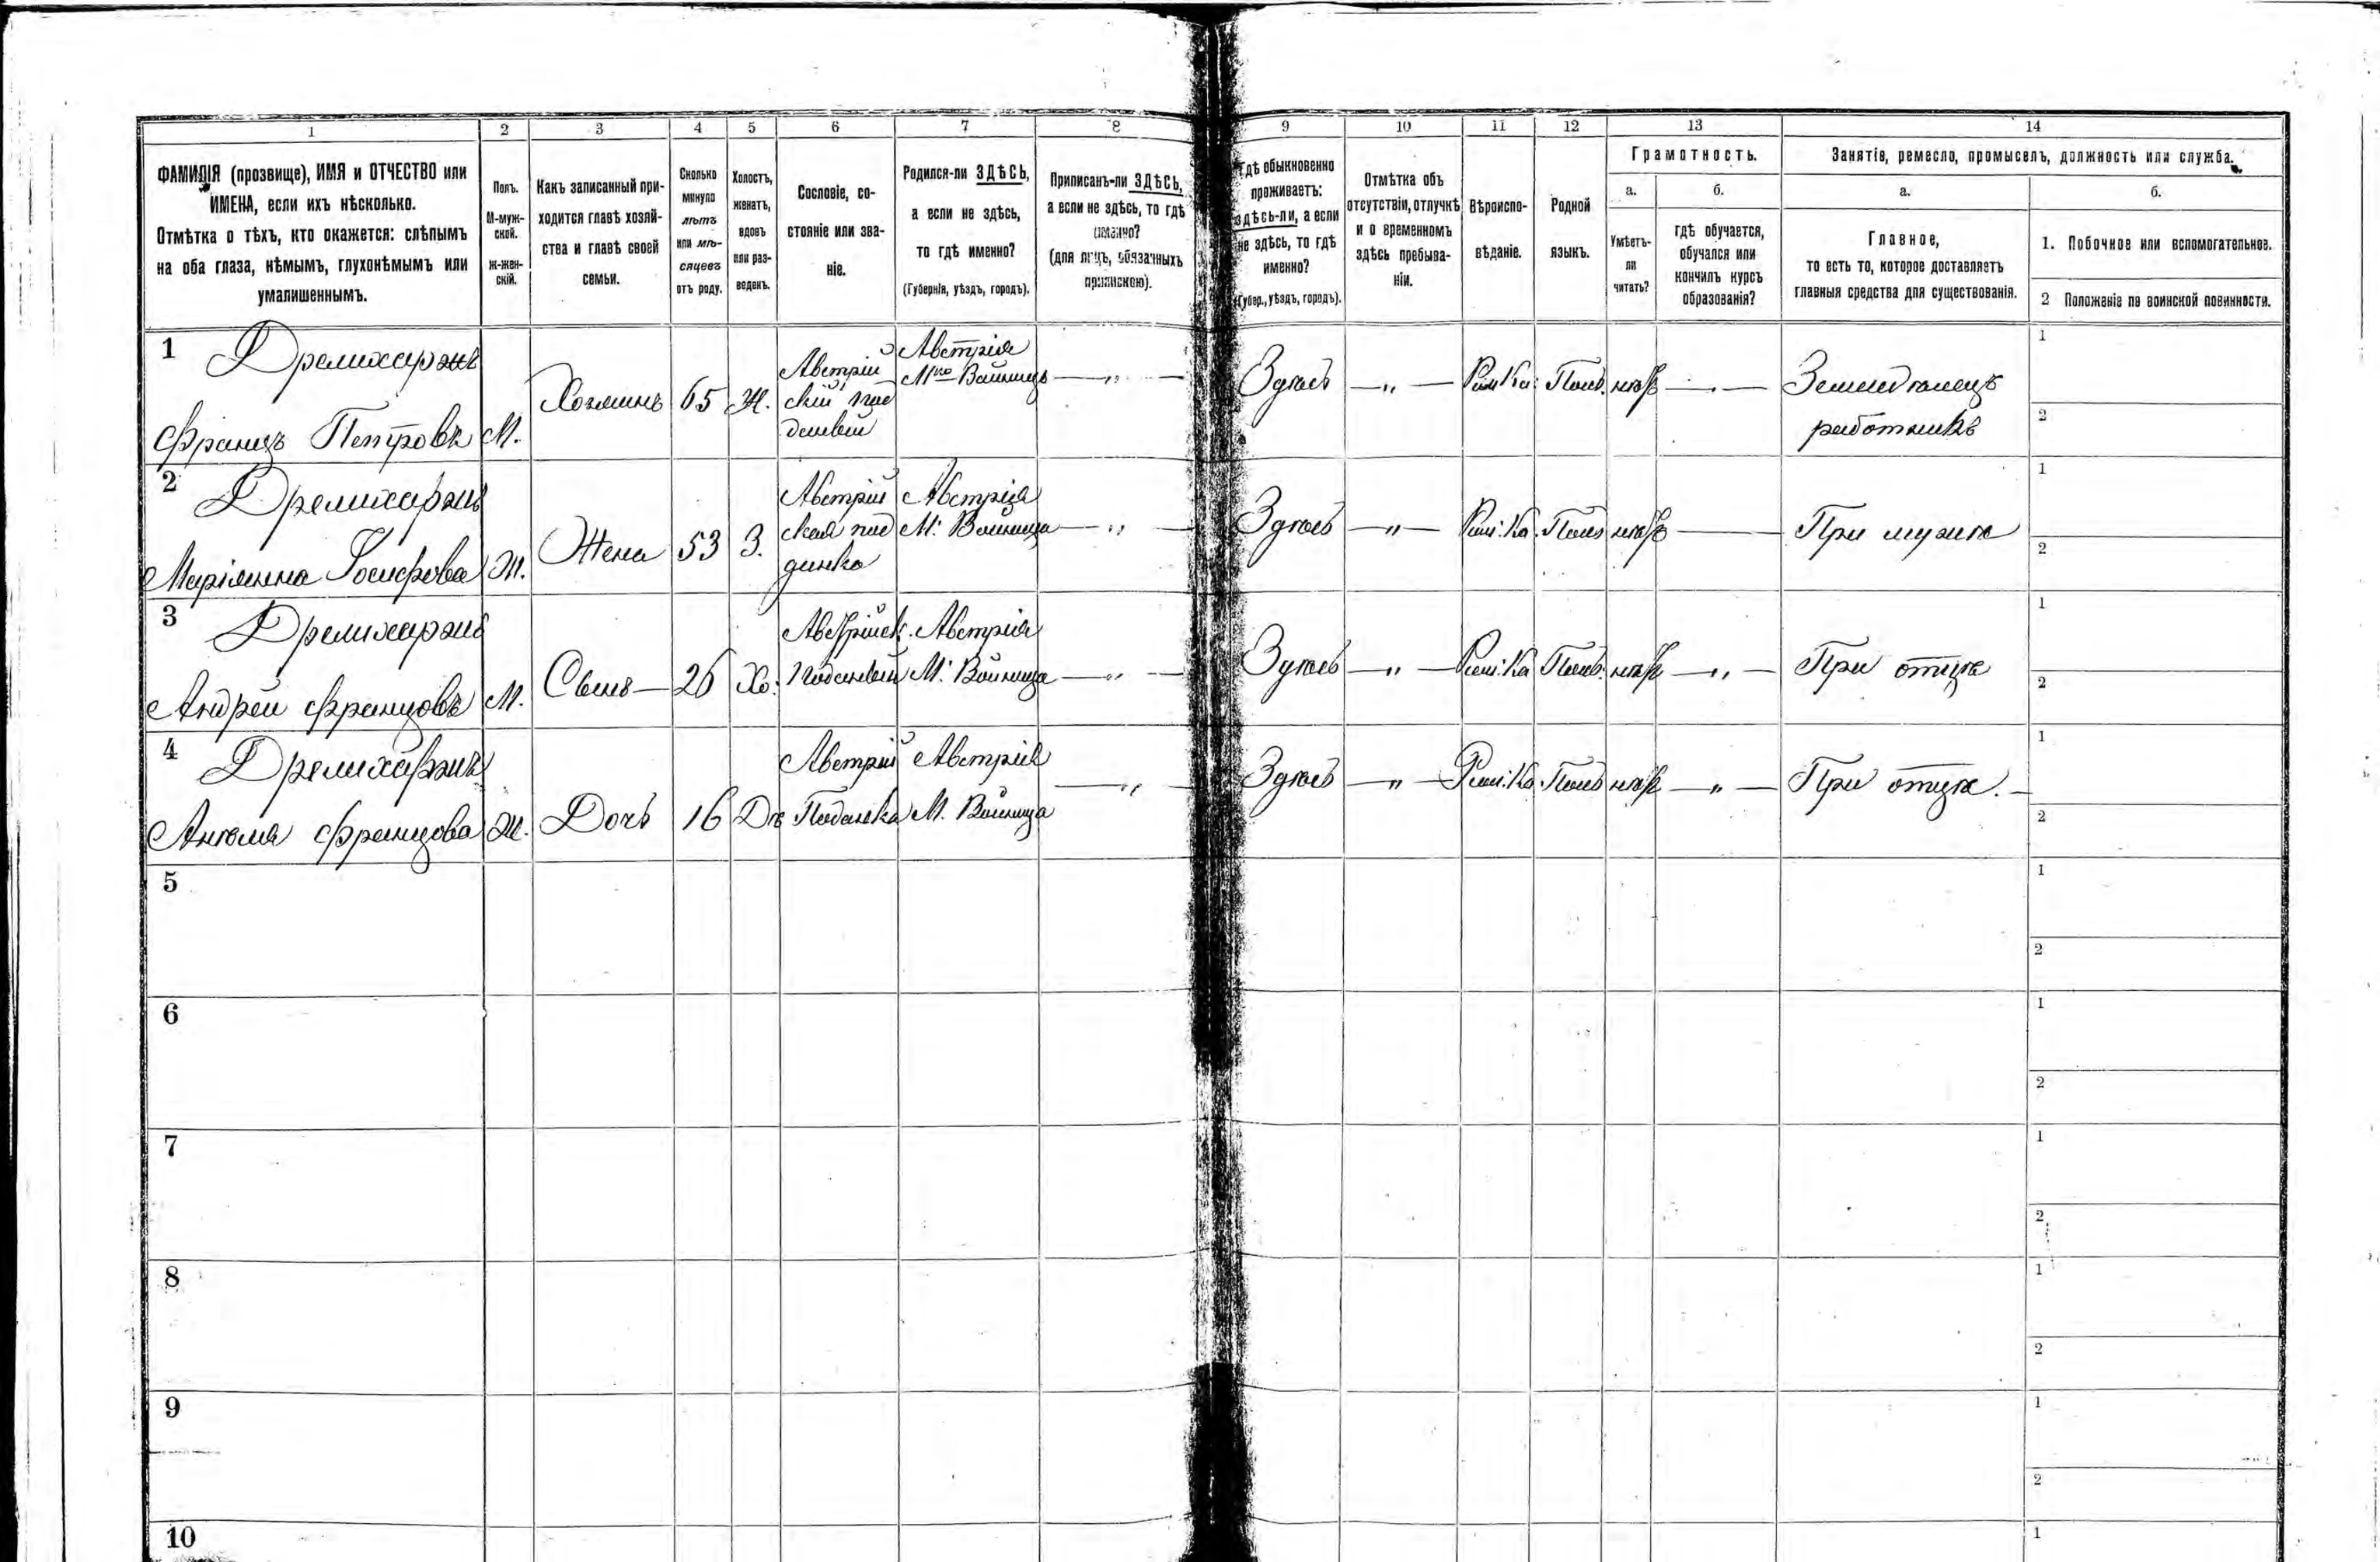 1 2 3 4 5 6 7 8 9 10 11 12 13 14
ФАМИЛІЯ (прозвище), ИМЯ и ОТЧЕСТВО или
ИМЕНА, если ихъ нѣсколько.
Отмѣтка о тѣхъ, кто окажется: слѣпымъ
на оба глаза, нѣмымъ, глухонѣмымъ или
умалишеннымъ.
Полъ.
М-муж-
ской.
Ж-жен-
скій.
Какъ записанный при-
ходится главѣ хозяй-
ства и главѣ своей
семьи.
Сколько
минуло
лѣтъ
или мѣ-
сяцевъ
отъ роду.
Холостъ,
женатъ,
вдовъ
или раз-
веденъ.
Сословіе, со-
стояніе или зва-
ніе.
Родился-ли ЗДѢСЬ,
а если не здѣсь,
то гдѣ именно?
(Губернія, уѣздъ, городъ).
Приписанъ-ли ЗДѢСЬ,
а если не здѣсь, то гдѣ
именно?
(для лицъ, обязанныхъ
припискою).
Гдѣ обыкновенно
проживаетъ:
здѣсь-ли, а если
не здѣсь, то гдѣ
именно?
(Губер., уѣздъ, городъ).
Отмѣтка объ
отсутствіи, отлучкѣ
и о временномъ
здѣсь пребыва-
ніи.
Вѣроиспо-
вѣданіе.
Родной
языкъ.
Грамотность.
а.
Умѣетъ-
ли
читать?
б.
гдѣ обучается,
обучался или
кончилъ курсъ
образованія?
Занятія, ремесло, промыселъ, должность или служба.
а.
Главное,
то есть то, которое доставляетъ
главныя средства для существованія.
б.
1. Побочное или вспомогательное.
2 Положеніе по воинской повинности.
1 Дремихаржъ
Францъ Петровъ
М.
Хозяинъ
65
Ж.
Австрій
скій под
данный
Австрія
М-ко Войничъ
— „ —
Здѣсь
— „ —
Рим.Ка.
Поль.
нѣтъ
— „ —
Земледѣлецъ
работникъ
1
2
2
Маріянна Іосифова
Ж.
Жена
53
З.
Австрій
ская под
данка
Австрія
М. Войница
— „ —
Здѣсь
— „ —
Рим.Ка.
Поль
нѣтъ
—
При мужѣ
1
2
3
Андрей Францовъ
М.
Сынъ —
26
Хо.
Австрійск.
Подданный
Австрія
М. Войница
— „ —
Здѣсь
— „ —
Рим.Ка
Поль.
нѣтъ
— „ —
При отцѣ
1
2
4
Францова
Ж.
Дочь
16
Дѣ
Австрій
Поданка
Австрія
М. Войница
— „
Здѣсь
— „ —
Рим.Ка.
Поль
нѣтъ
— „ —
При отцѣ. —
1
2
5
1
2
6
1
2
7
1
2
8
1
2
9
1
2
10
1